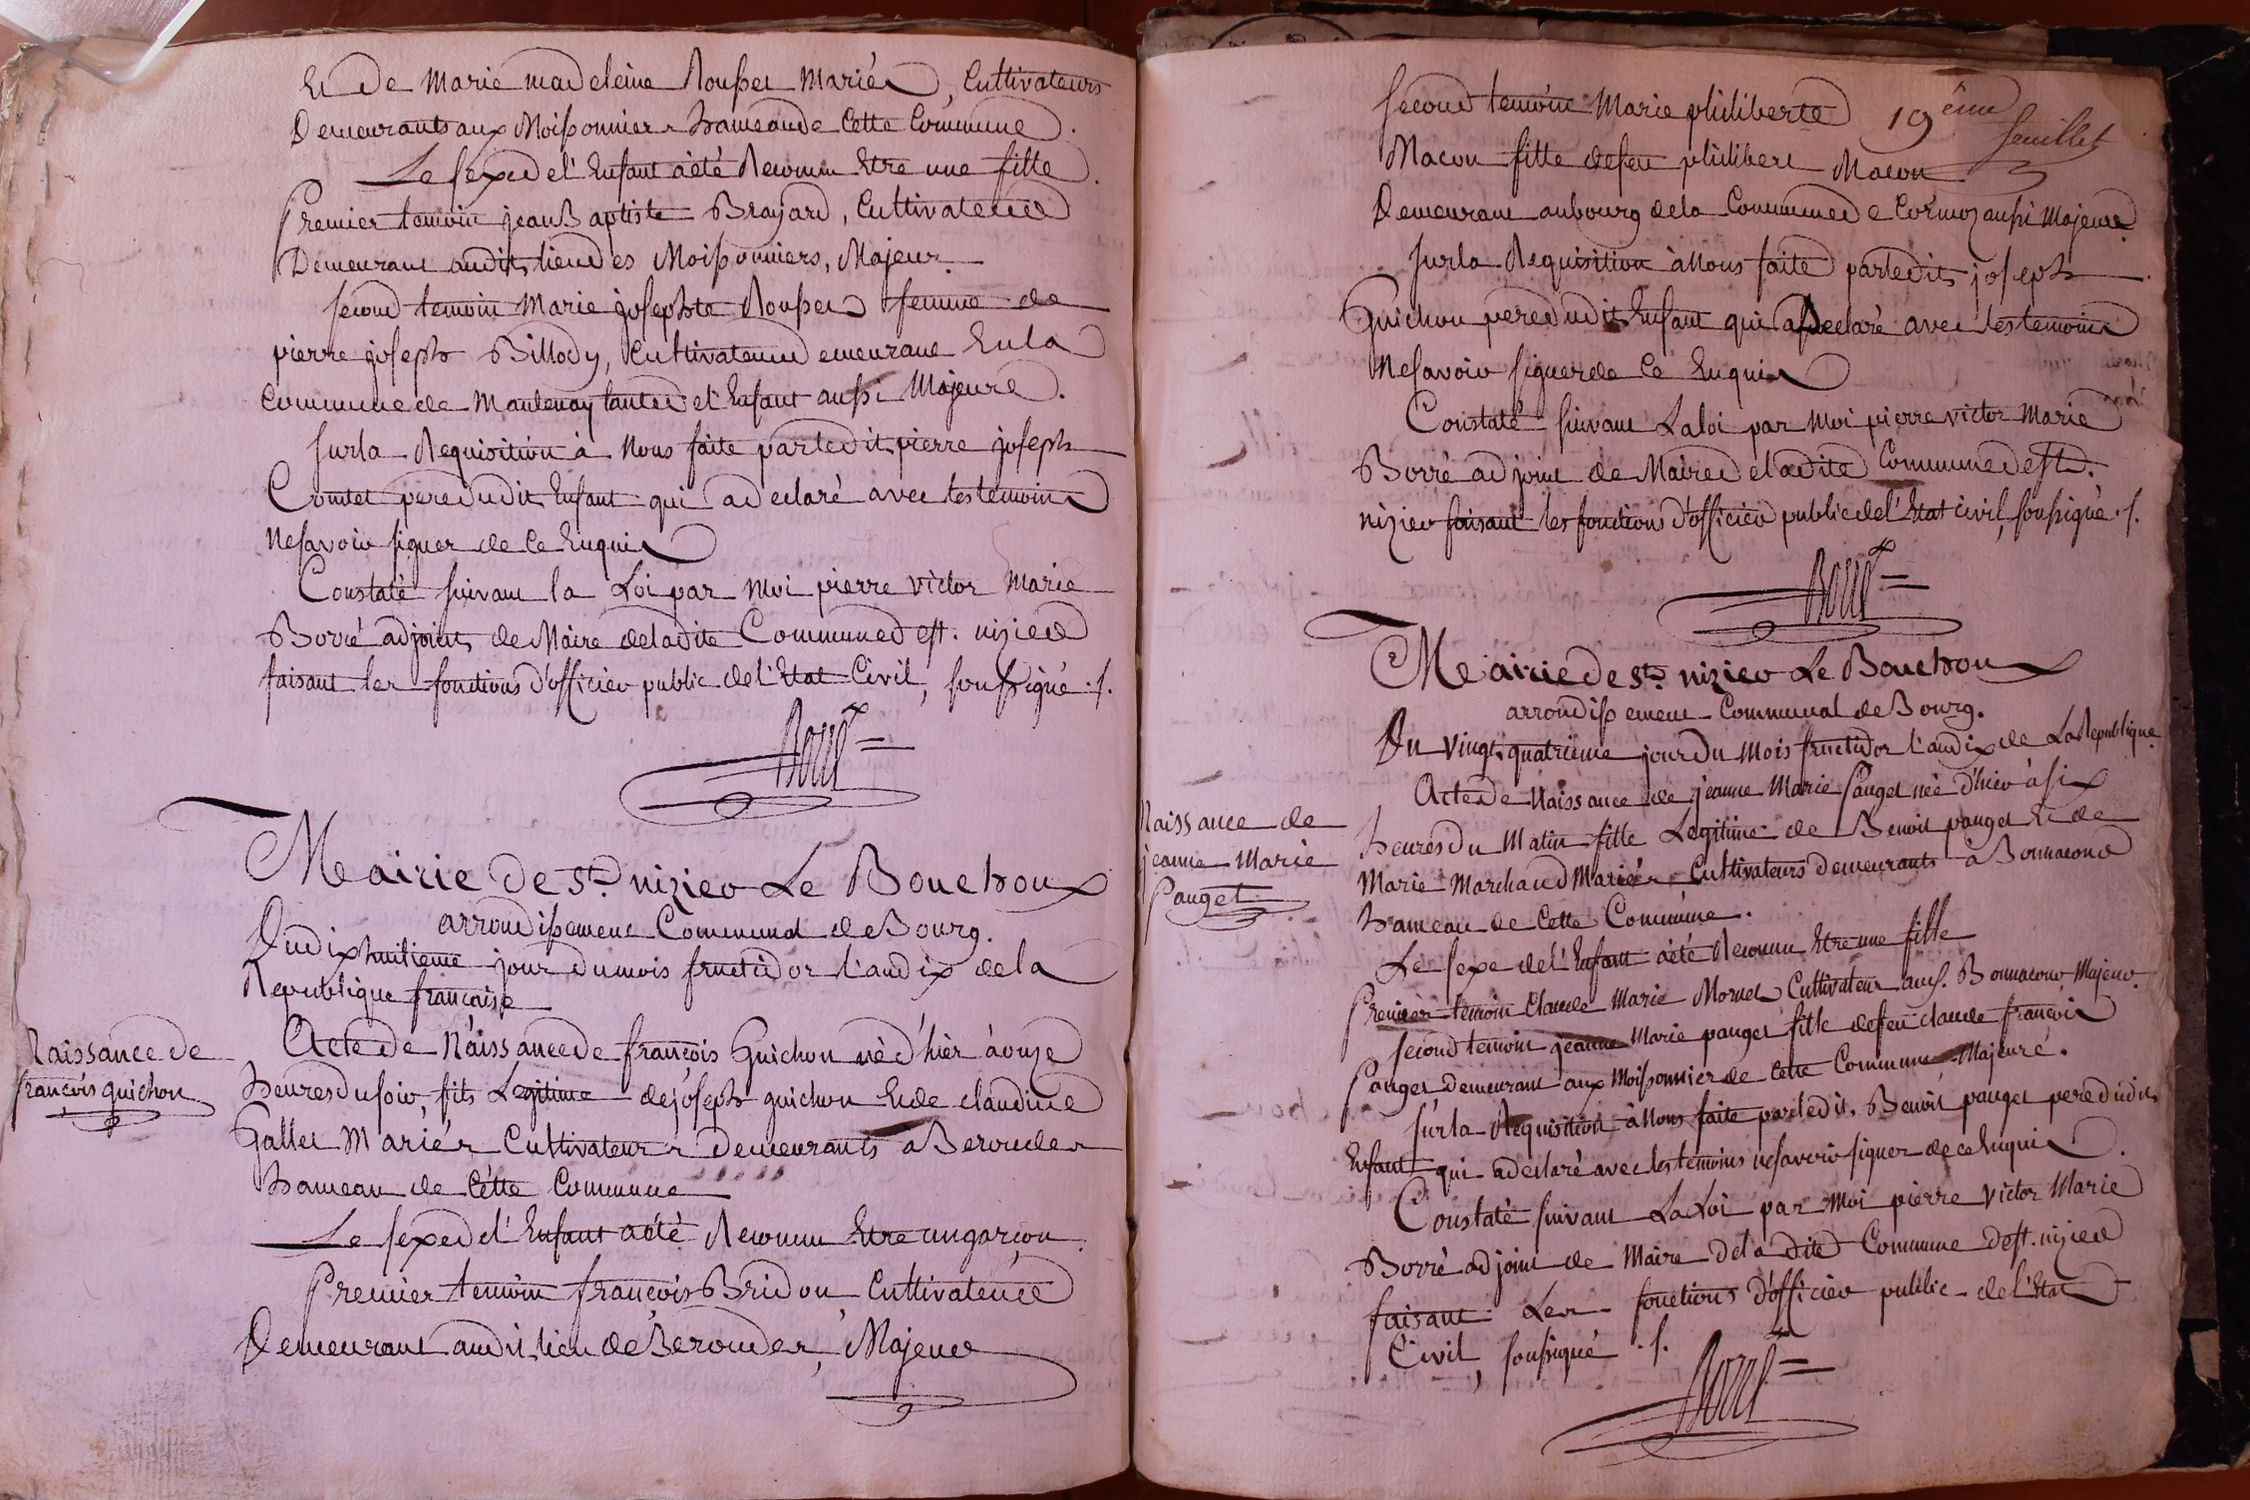 Et de Marie madeleine Rousset Mariés, Cultivateurs
Demeurants aux Moissonniers hameau de Cette Commune.
Le sexe de l'Enfant a été Reconnu Etre une fille.
Premier temoin jean Baptiste Brayard, Cultivateur
Demeurant audit lieu des Moissonniers, Majeur.
second temoin Marie josephte Rousset femme de
pierre joseph Billody, Cultivateur demeurant En la
Commune de Mantenay tante de l'Enfant aussi Majeure.
sur la Requisition à Nous faite par ledit pierre joseph
Comtet pere dudit Enfant qui a declaré avec les temoins
Ne savoir signer de ce Enquis
Constaté suivant la Loi par Moi pierre victor Marie
Borré adjoint de Maire de la dite Commune de st. nizier
faisant les fonctions d'officier public de l'Etat Civil, soussigné ./.
Borré
Mairie de st. nizier Le Bouchoux
arrondissement Communal de Bourg.
Du dix huitieme jour du mois fructidor l'an dix de la
Republique française
Naissance de
françois guichon
Acte de Naissance de françois Guichon né d'hier à onze
heures du soir, fils Legitime de joseph guichon Et de claudine
Gallet Mariés Cultivateurs Demeurants a Beroudes
hameau de Cette Commune
Le sexe de l'Enfant a été Reconnu Etre un garçon.
Premier temoin françois Bridon, Cultivateur
Demeurant audit lieu de Beroudes, Majeur
19ème
feuillet
second temoin Marie philiberte
Macon fille de feu philibert Macon
Demeurant au bourg de la Commune de Cormoz aussi Majeure.
sur la Requisition à Nous faite par ledit joseph
Guichon pere dudit Enfant qui a Declaré avec les temoins
Ne savoir signer de ce Enquis
Constaté suivant La loi par Moi pierre victor Marie
Borré adjoint de Maire de la dite Commune de st.
nizier faisant les fonctions d'officier public de l'Etat civil, soussigné ./.
Borré
Mairie de st. nizier Le Bouchoux
arrondissement Communal de Bourg.
Du vingt quatrieme jour du Mois fructidor l'an dix de La Republique
Naissance de
jeanne Marie
Pauget
Acte de Naissance de jeanne Marie Pauget née d'hier à six
heures du Matin fille Legitime de Benoit pauget Et de
Marie Marchand Mariés Cultivateurs demeurants à Bonnacour
hameau de Cette Commune.
Le sexe de l'Enfant a été Reconnu Etre une fille
Premier temoin Claude Marie Mornet Cultivateur aus. Bonnacour, Majeur.
second temoin jeanne Marie pauget fille de feu claude françois
Pauget, demeurant aux Moissonniers de Cette Commune Majeure.
sur la Requisition à Nous faite par ledit Benoit pauget pere dudit
Enfant qui a declaré avec les temoins ne savoir signer de ce Enquis.
Constaté suivant La Loi par Moi pierre victor Marie
Borré adjoint de Maire de la dite Commune de st. nizier
faisant Les fonctions d'officier public de l'Etat
Civil, soussigné ./.
Borré